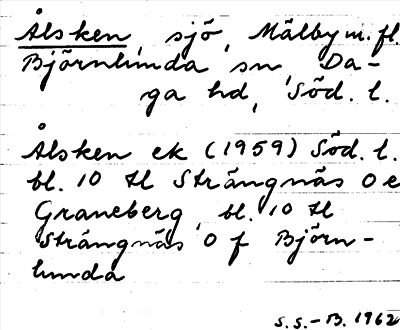 Ålsken, sjö, Mälby m.fl.
Björnlunda sn, Da-
ga hd, Söd. l.
Ålsken ek (1959) Söd. l.
bl. 10 tl Strängnäs O e
Graneberg, bl. 10 tl
Strängnäs O f Björn-
lunda
S.S.-B. 1962